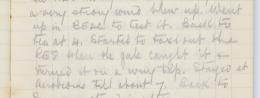 a very strong wind blew up. Went
up in BE2e to test it. Back to
tea at 4. Started to taxi out the
RE8 when the gale caught it &
turned it on a wing tip. Stayed at
Aerodrome till about 7. Back to